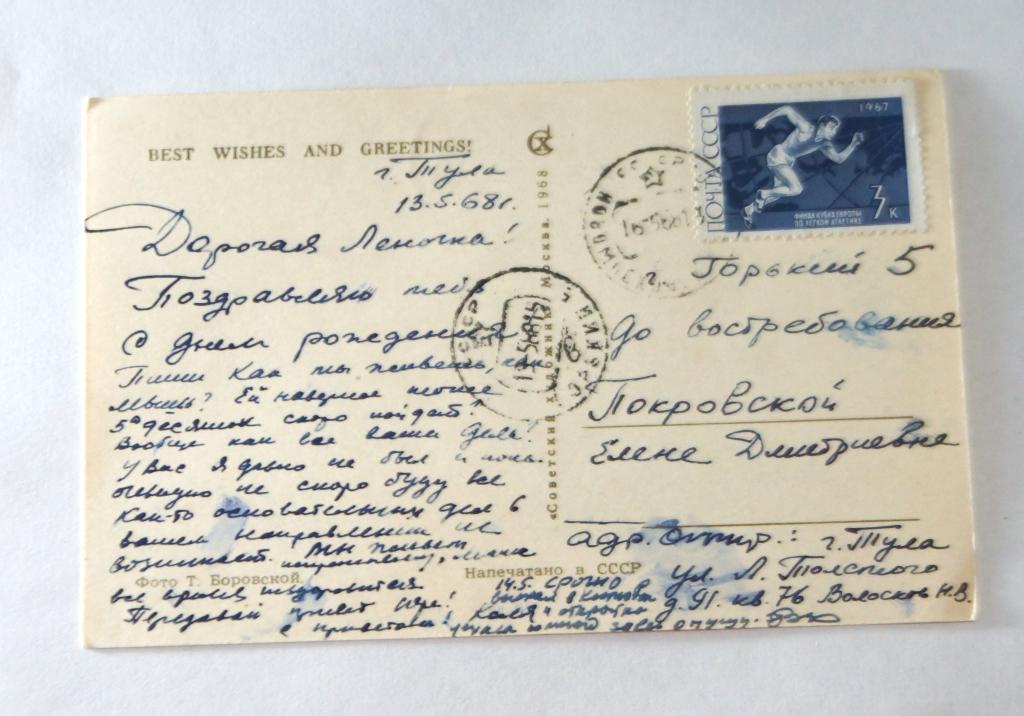 BEST WISHES AND GREETINGS!
г. Тула
13.5.68 г.
Дорогая Леночка!
Поздравляю тебя
с днем рождения
Пиши как ты живешь, как
мышь? Ей наверное тоже
5ый десяток скоро пойдет!
Вообще как все ваши дела?
У Вас я давно не был и пока
очевидно не скоро буду все
как-то основательных дел в
вашем направлении не
возникает. Мы живем
мама
все время
Передавай привет Ире!
с приветом Коля
14.5. срочно
и открытку
опущу.
Фото Т. Боровской.
Напечатано в СССР
«Советский художник» Москва. 1968
ПОЧТА СССР
1967
ФИНАЛ КУБКА ЕВРОПЫ
ПО ЛЕГКОЙ АТЛЕТИКЕ
3 к
СССР
г. Горький 5
До востребования
Покровской
Елене Дмитриевне
адр. отпр.: г. Тула
ул. Л. Толстого
д. 91. кв. 76 Волосков Н.В.